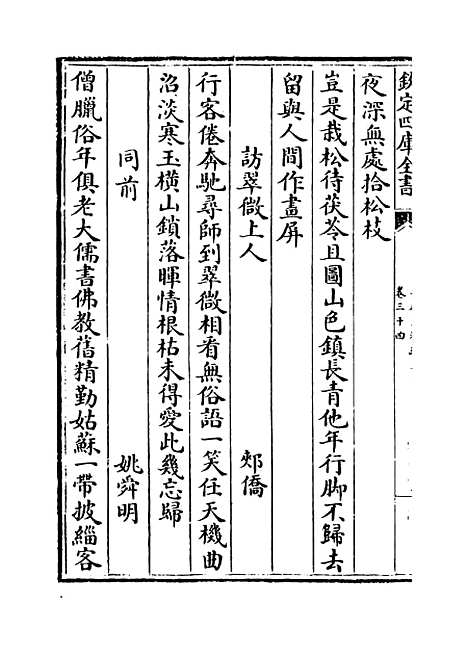 欽定四庫全書
卷三十四
夜深無處拾松枝
豈是栽松待茯苓且圖山色鎮長青他年行脚不歸去
留與人間作畫屏
訪翠微上人　郟僑
行客倦奔馳尋師到翠微相看無俗語一笑任天機曲
沼淡寒玉橫山鎖落暉情根枯未得愛此幾忘歸
同前　姚舜明
僧臘俗年俱老大儒書佛教舊精勤姑蘇一帶披緇客